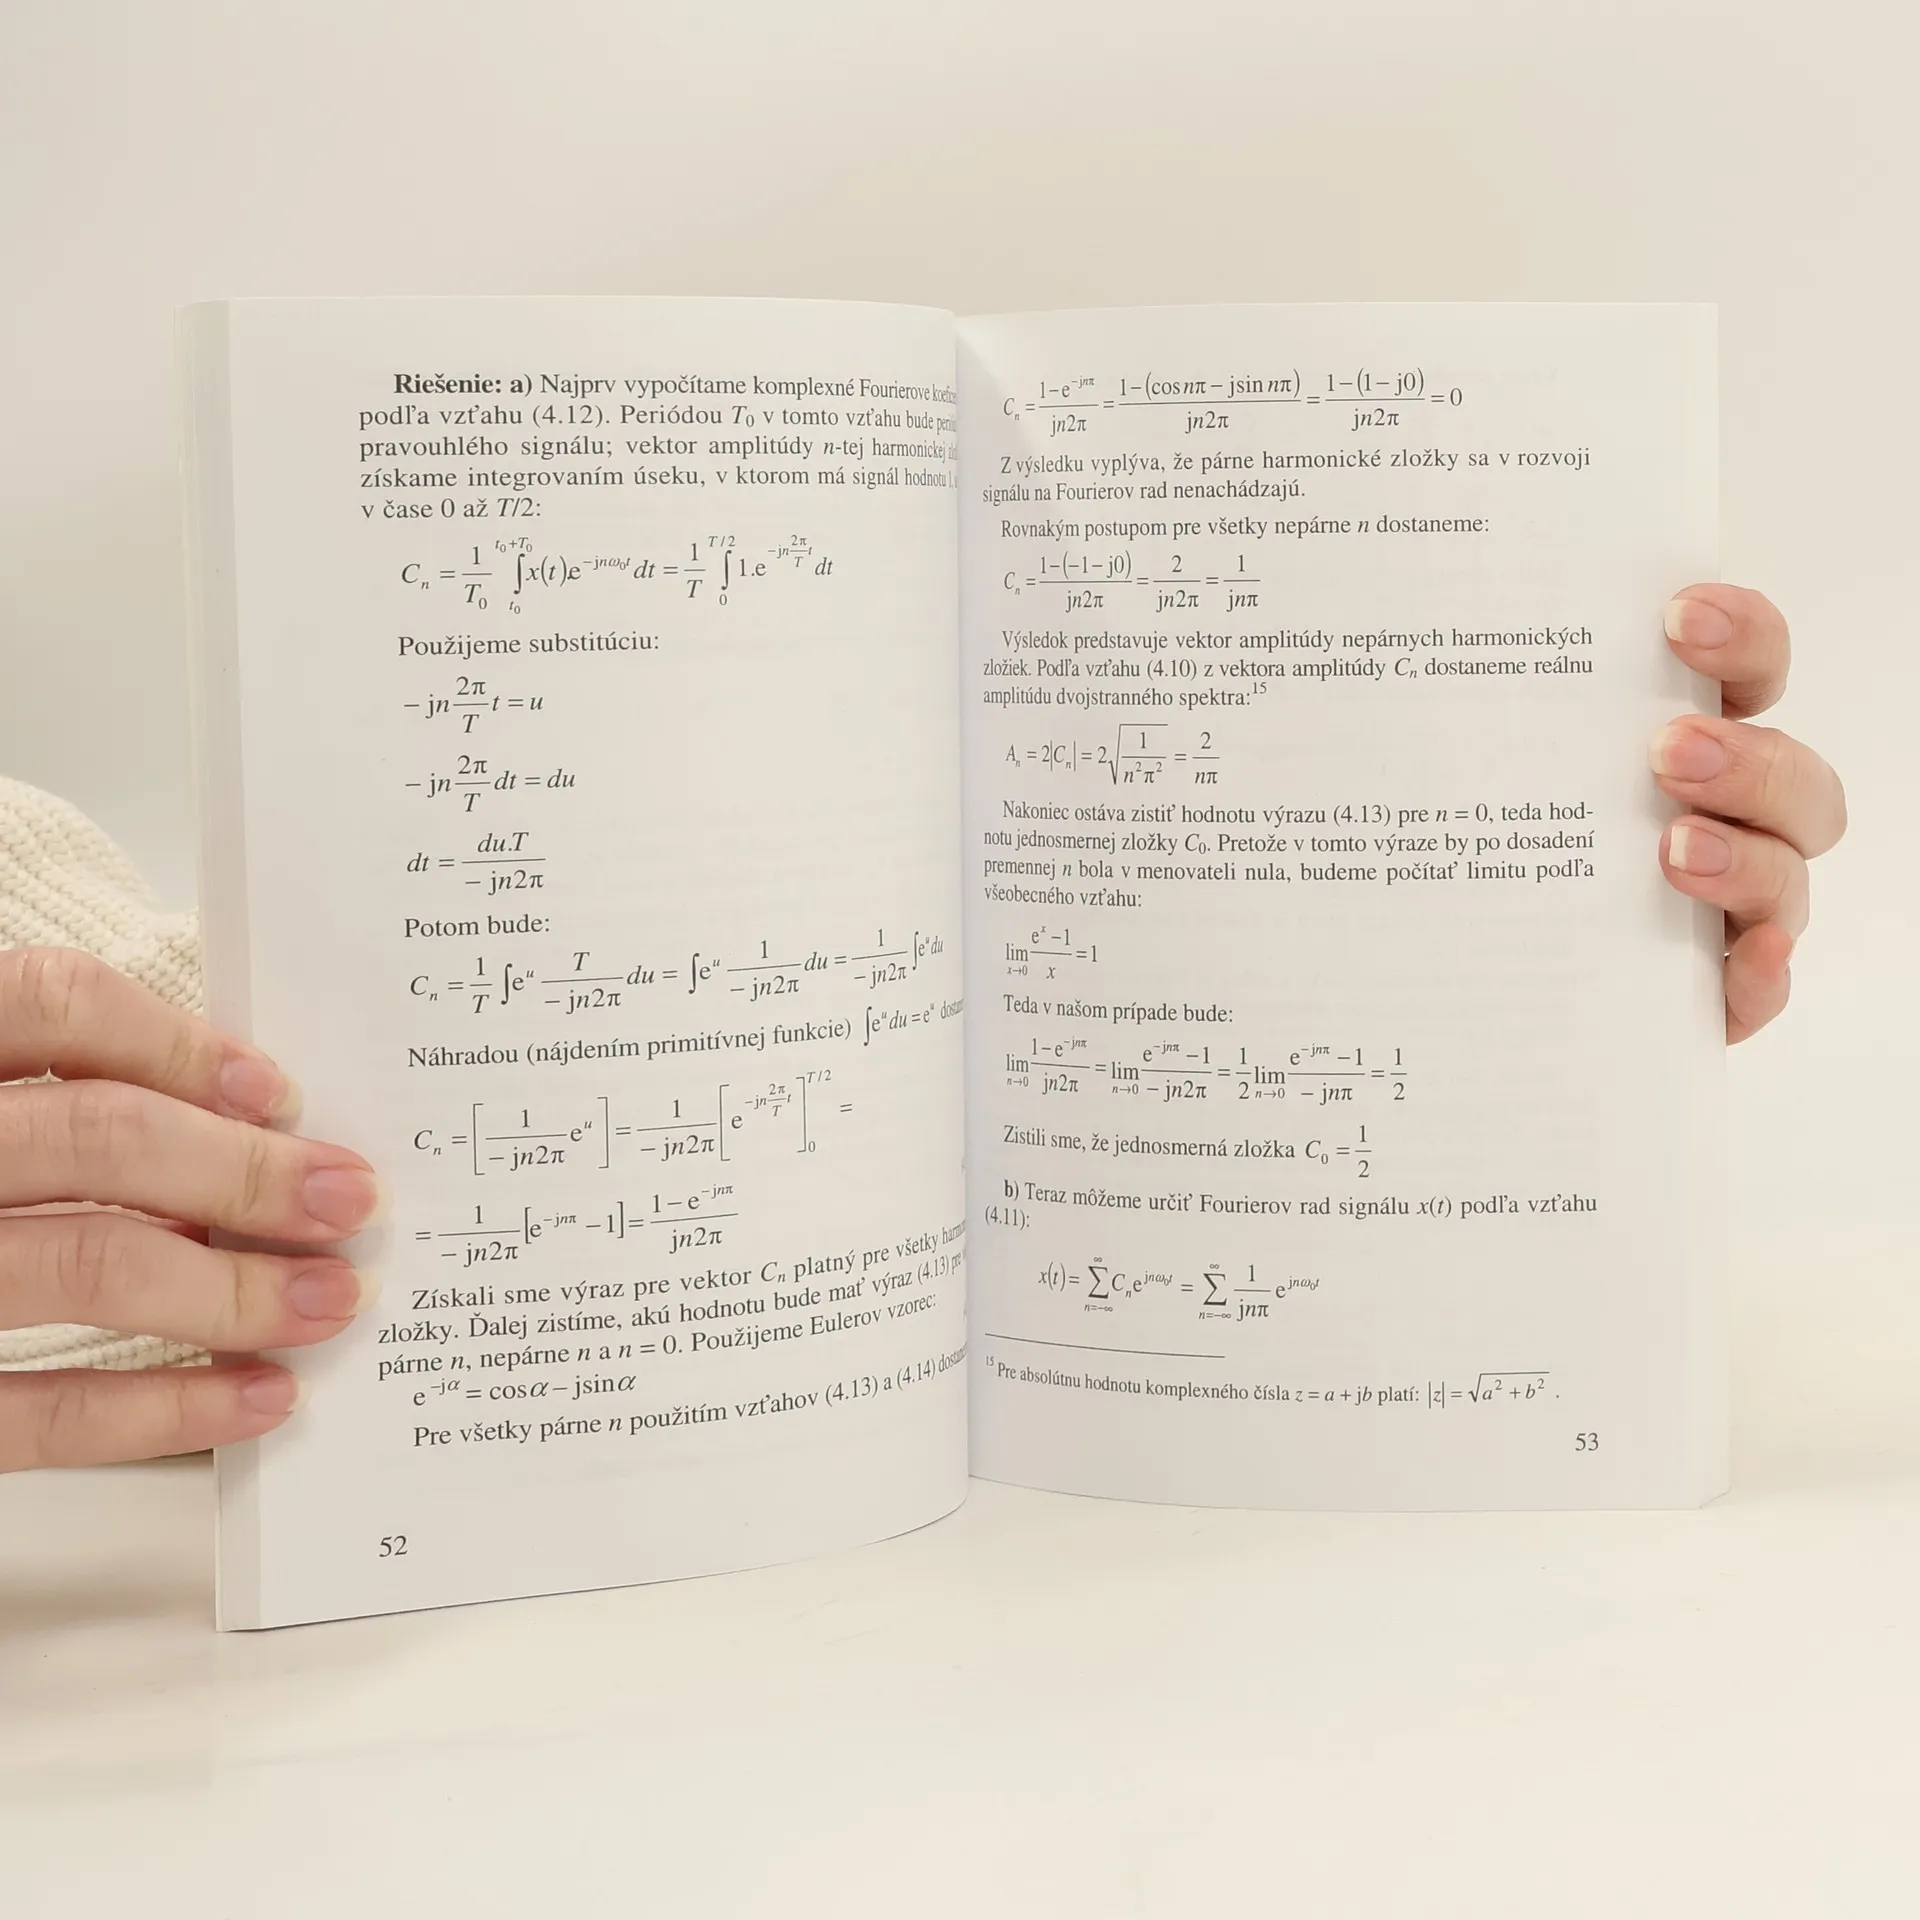 Riešenie: a) Najprv vypočítame komplexné Fourierove
podľa vzťahu (4.12). Periódou T₀ v tomto vzťahu bude
pravouhlého signálu; vektor amplitúdy n-tej harmonickej
získame integrovaním úseku, v ktorom má signál hodnotu 1,
v čase 0 až T/2:
Cₙ = 1/T₀ ∫_{t₀}^{t₀+T₀} x(t)e^{-jnω₀t} dt = 1/T ∫_0^{T/2} 1.e^{-jn(2π/T)t} dt
Použijeme substitúciu:
– jn 2π/T t = u
– jn 2π/T dt = du
dt = du.T / – jn2π
Potom bude:
Cₙ = 1/T ∫e^u T/(– jn2π) du = ∫e^u 1/(– jn2π) du = 1/(– jn2π) ∫e^u du
Náhradou (nájdením primitívnej funkcie) ∫e^u du = e^u
Cₙ = [1/(– jn2π) e^u] = 1/(– jn2π) [e^{-jn(2π/T)t}]_0^{T/2} =
= 1/(– jn2π) [e^{-jnπ} – 1] = (1 – e^{-jnπ})/(jn2π)
Získali sme výraz pre vektor Cₙ platný pre všetky
zložky. Ďalej zistíme, akú hodnotu bude mať výraz (4.13) pre
párne n, nepárne n a n = 0. Použijeme Eulerov vzorec:
e^{-jα} = cosα – jsinα
Pre všetky párne n použitím vzťahov (4.13) a (4.14)
52
Cₙ = (1–e^{-jnπ})/(jn2π) = (1–(cos nπ – jsin nπ))/(jn2π) = (1–(1– j0))/(jn2π) = 0
Z výsledku vyplýva, že párne harmonické zložky sa v rozvoji
signálu na Fourierov rad nenachádzajú.
Rovnakým postupom pre všetky nepárne n dostaneme:
Cₙ = (1–(–1– j0))/(jn2π) = 2/(jn2π) = 1/(jnπ)
Výsledok predstavuje vektor amplitúdy nepárnych harmonických
zložiek. Podľa vzťahu (4.10) z vektora amplitúdy Cₙ dostaneme reálnu
amplitúdu dvojstranného spektra:¹⁵
Aₙ = 2|Cₙ| = 2√(1/(n²π²)) = 2/(nπ)
Nakoniec ostáva zistiť hodnotu výrazu (4.13) pre n = 0, teda hod-
notu jednosmernej zložky C₀. Pretože v tomto výraze by po dosadení
premennej n bola v menovateli nula, budeme počítať limitu podľa
všeobecného vzťahu:
lim_{x→0} (e^x –1)/x = 1
Teda v našom prípade bude:
lim_{n→0} (1–e^{-jnπ})/(jn2π) = lim_{n→0} (e^{-jnπ} –1)/(– jn2π) = 1/2 lim_{n→0} (e^{-jnπ} –1)/(– jnπ) = 1/2
Zistili sme, že jednosmerná zložka C₀ = 1/2
b) Teraz môžeme určiť Fourierov rad signálu x(t) podľa vzťahu
(4.11):
x(t) = ∑_{n=–∞}^{∞} Cₙe^{jnω₀t} = ∑_{n=–∞}^{∞} 1/(jnπ) e^{jnω₀t}
¹⁵ Pre absolútnu hodnotu komplexného čísla z = a + jb platí: |z| = √(a² + b²) .
53